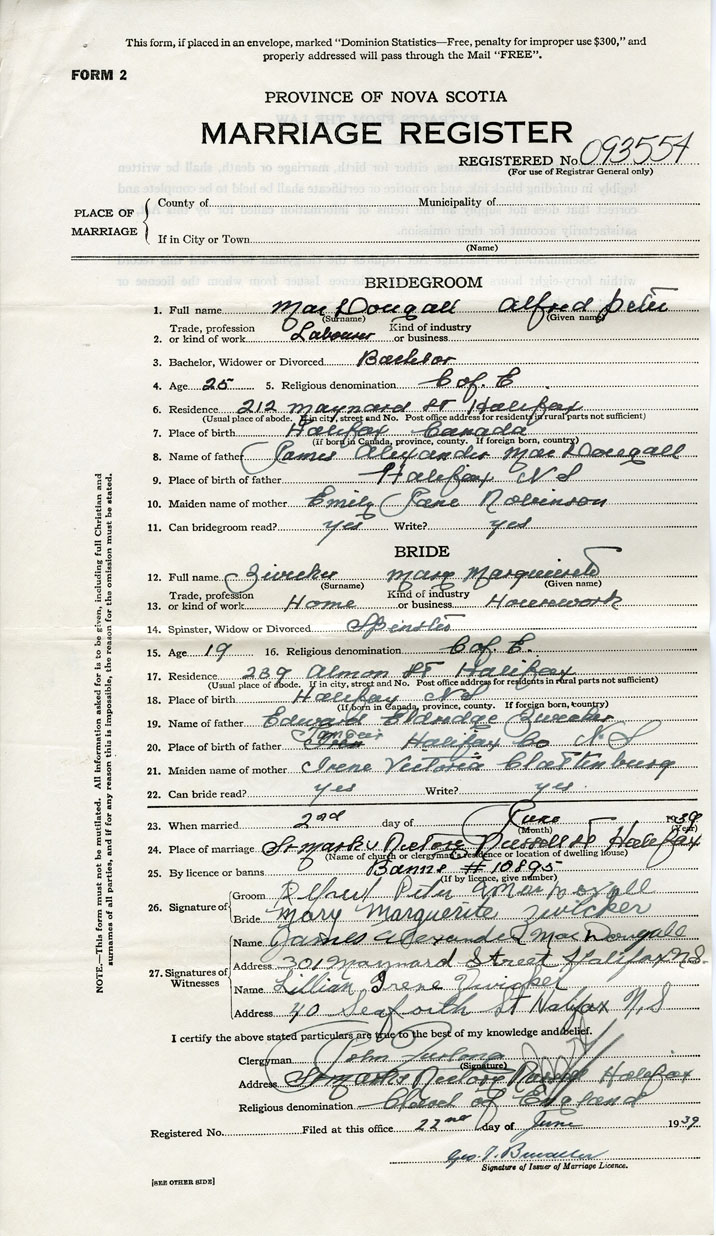 This form, if placed in an envelope, marked "Dominion Statistics—Free, penalty for improper use $300," and
properly addressed will pass through the Mail "FREE".
FORM 2
PROVINCE OF NOVA SCOTIA
MARRIAGE REGISTER
REGISTERED No 093554
(For use of Registrar General only)
PLACE OF MARRIAGE
County of Municipality of
If in City or Town
(Name)
BRIDEGROOM
1. Full name MacDougall Alfred Peter
(Surname) (Given name)
2. Trade, profession or kind of work Labourer Kind of industry or business
3. Bachelor, Widower or Divorced Bachelor
4. Age 25 5. Religious denomination C of E
6. Residence 212 Maynard St Halifax
(Usual place of abode. If in city, street and No. Post office address for residents in rural parts not sufficient)
7. Place of birth Halifax Canada
(If born in Canada, province, county. If foreign born, country)
8. Name of father James Alexander MacDougall
9. Place of birth of father Halifax N S
10. Maiden name of mother Emily Jane Robinson
11. Can bridegroom read? yes Write? yes
BRIDE
12. Full name Zwicker Mary Marguerite
(Surname) (Given name)
13. Trade, profession or kind of work Home Kind of industry or business Housework
14. Spinster, Widow or Divorced Spinster
15. Age 19 16. Religious denomination C of E.
17. Residence 239 Almon St Halifax
(Usual place of abode. If in city, street and No. Post office address for residents in rural parts not sufficient)
18. Place of birth Halifax N S
(If born in Canada, province, county. If foreign born, country)
19. Name of father Edward Eldridge Zwicker
Tangier
20. Place of birth of father Halifax Co N S
21. Maiden name of mother Irene Victoria
22. Can bride read? yes Write? yes.
23. When married 2nd day of June 1939
(Month) (Year)
24. Place of marriage St Marks Rectory Russell St Halifax
(Name of church or clergyman's residence or location of dwelling house)
25. By licence or banns Banns # 10895
(If by licence, give number)
26. Signature of Groom Alfred Peter MacDougall
Bride Mary Marguerite Zwicker
27. Signatures of Witnesses
Name James Alexander MacDougall
Address 301 Maynard Street Halifax N.S.
Name Lillian Irene Zwicker
Address 40 Seaforth St Halifax N,S
I certify the above stated particulars are true to the best of my knowledge and belief.
Clergyman John Furlong
(Signature)
Address St Marks Rectory Russell Halifax
Religious denomination Church of England
Registered No. Filed at this office 22nd day of June 1939
Geo. T.
Signature of Issuer of Marriage Licence.
[SEE OTHER SIDE]
NOTE.—This form must not be mutilated. All information asked for is to be given, including full Christian and
surnames of all parties, and if for any reason this is impossible, the reason for the omission must be stated.